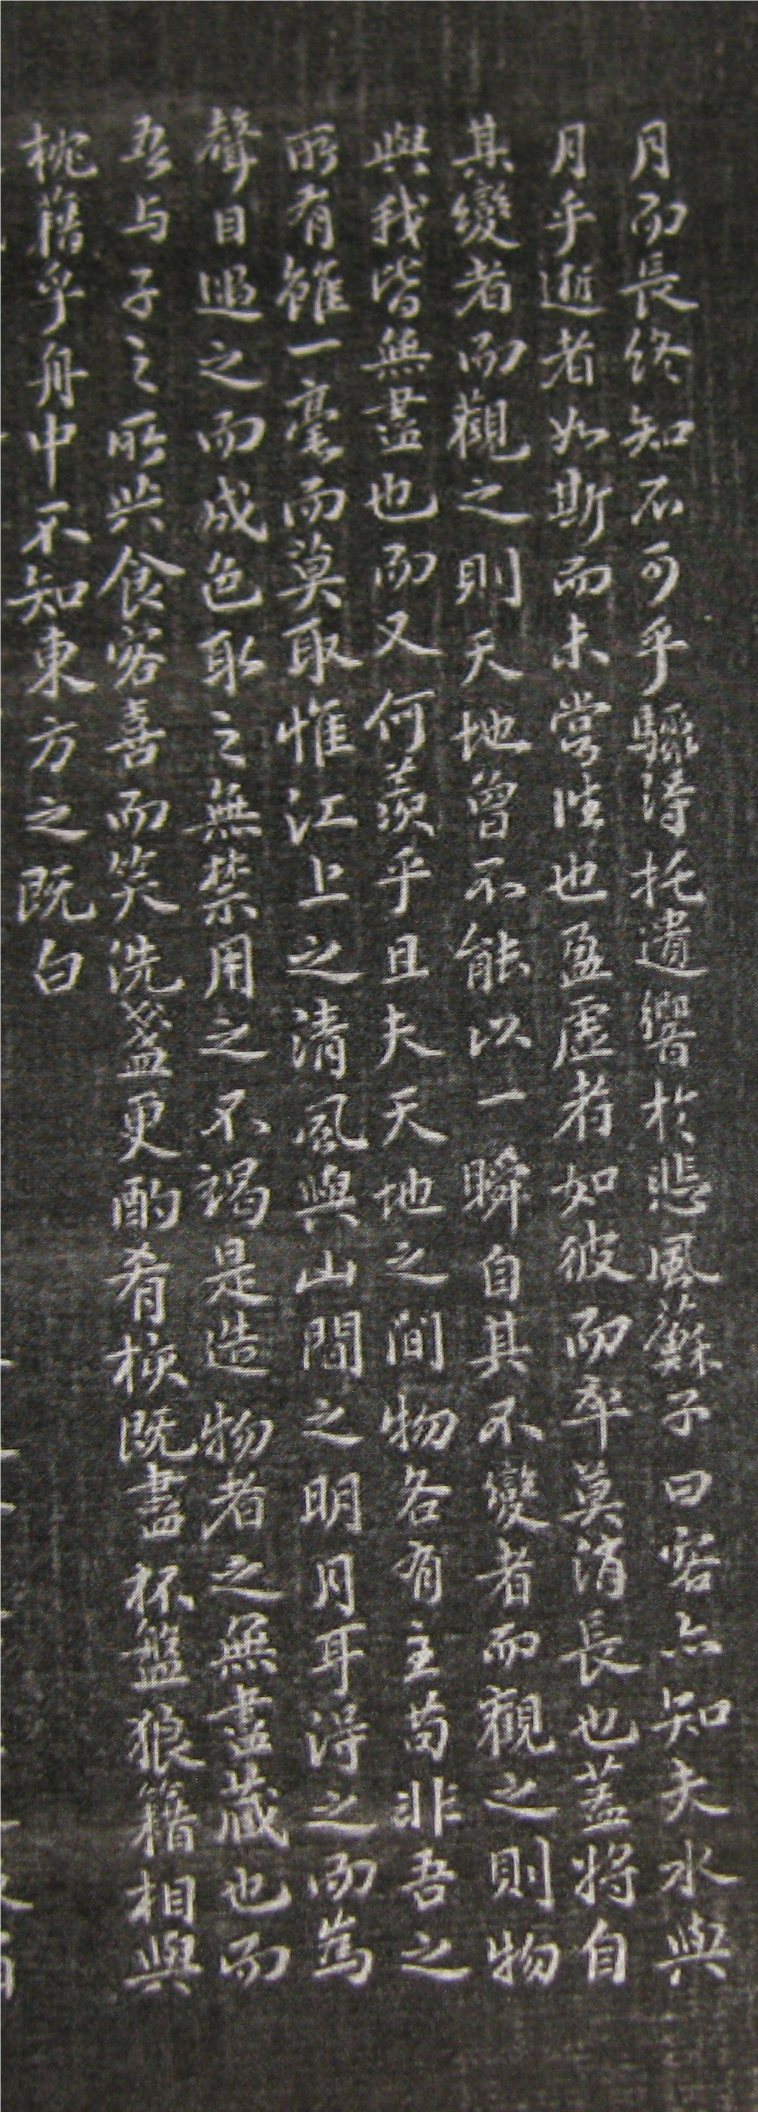 月而長終知不可乎驟得托遺響於悲風蘇子曰客亦知夫水與
月乎逝者如斯而未嘗往也盈虛者如彼而卒莫消長也蓋將自
其變者而觀之則天地曾不能以一瞬自其不變者而觀之則物
與我皆無盡也而又何羨乎且夫天地之間物各有主苟非吾之
所有雖一毫而莫取惟江上之清風與山間之明月耳得之而為
聲目遇之而成色取之無禁用之不竭是造物者之無盡藏也而
吾与子之所共食客喜而笑洗盞更酌肴核既盡杯盤狼籍相與
枕藉乎舟中不知東方之既白